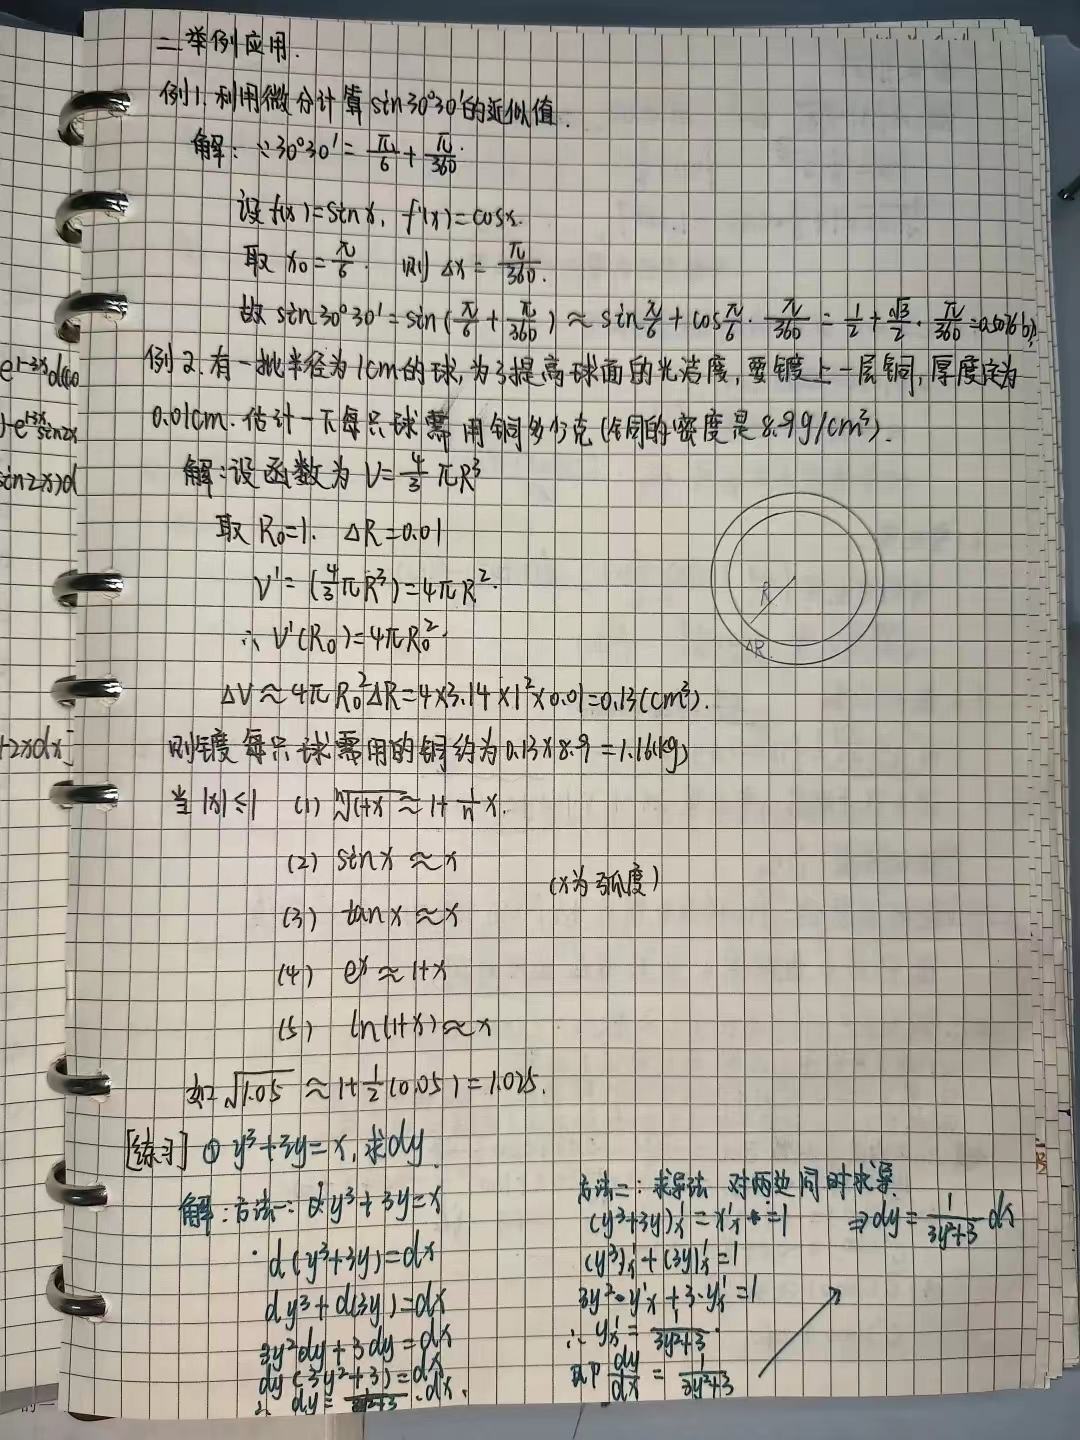 二 举例应用.
例1. 利用微分计算 sin30°30′的近似值.
解: ∵30°30′ = π/6 + π/360.
设 f(x)=sinx, f′(x)=cosx.
取 x₀ = π/6. 则 Δx = π/360.
故 sin30°30′ = sin(π/6 + π/360) ≈ sin π/6 + cos π/6 · π/360 = 1/2 + √3/2 · π/360 =
例2. 有一批半径为1cm的球,为了提高球面的光洁度,要镀上一层铜,厚度定为
0.01cm. 估计一下每只球需用铜多少克(铜的密度是8.9g/cm³).
解:设函数为 V = 4/3 πR³
取 R₀=1. ΔR=0.01
V′ = (4/3 πR³) = 4πR².
∴ V′(R₀)=4πR₀².
ΔV ≈ 4πR₀²ΔR = 4×3.14×1²×0.01=0.13(cm³).
则镀每只球需用的铜约为 0.13×8.9 = 1.16(g)
当 |x|≤1 (1) ⁿ√(1+x) ≈ 1+ 1/n x.
(2) sinx ≈ x
(x为弧度)
(3) tanx ≈ x
(4) eˣ ≈ 1+x
(5) ln(1+x) ≈ x
如 √1.05 ≈ 1+ 1/2 (0.05) = 1.025.
[练习] ① y³+3y = x, 求dy.
解:方法一: y³+3y=x
d(y³+3y)=dx
dy³+d(3y)=dx
3y²dy+3dy=dx
dy(3y²+3)=dx
∴ dy = 1/(3y²+3) · dx.
方法二: 求导法 对两边同时求导.
(y³+3y)′ₓ = x′ₓ =1 ⇒ dy = 1/(3y²+3) dx
(y³)′ₓ + (3y)′ₓ = 1
3y²·y′ₓ + 3·y′ₓ = 1
∴ y′ₓ = 1/(3y²+3).
即 dy/dx = 1/(3y²+3)
R
ΔR
sin2x)d
+2xdx]